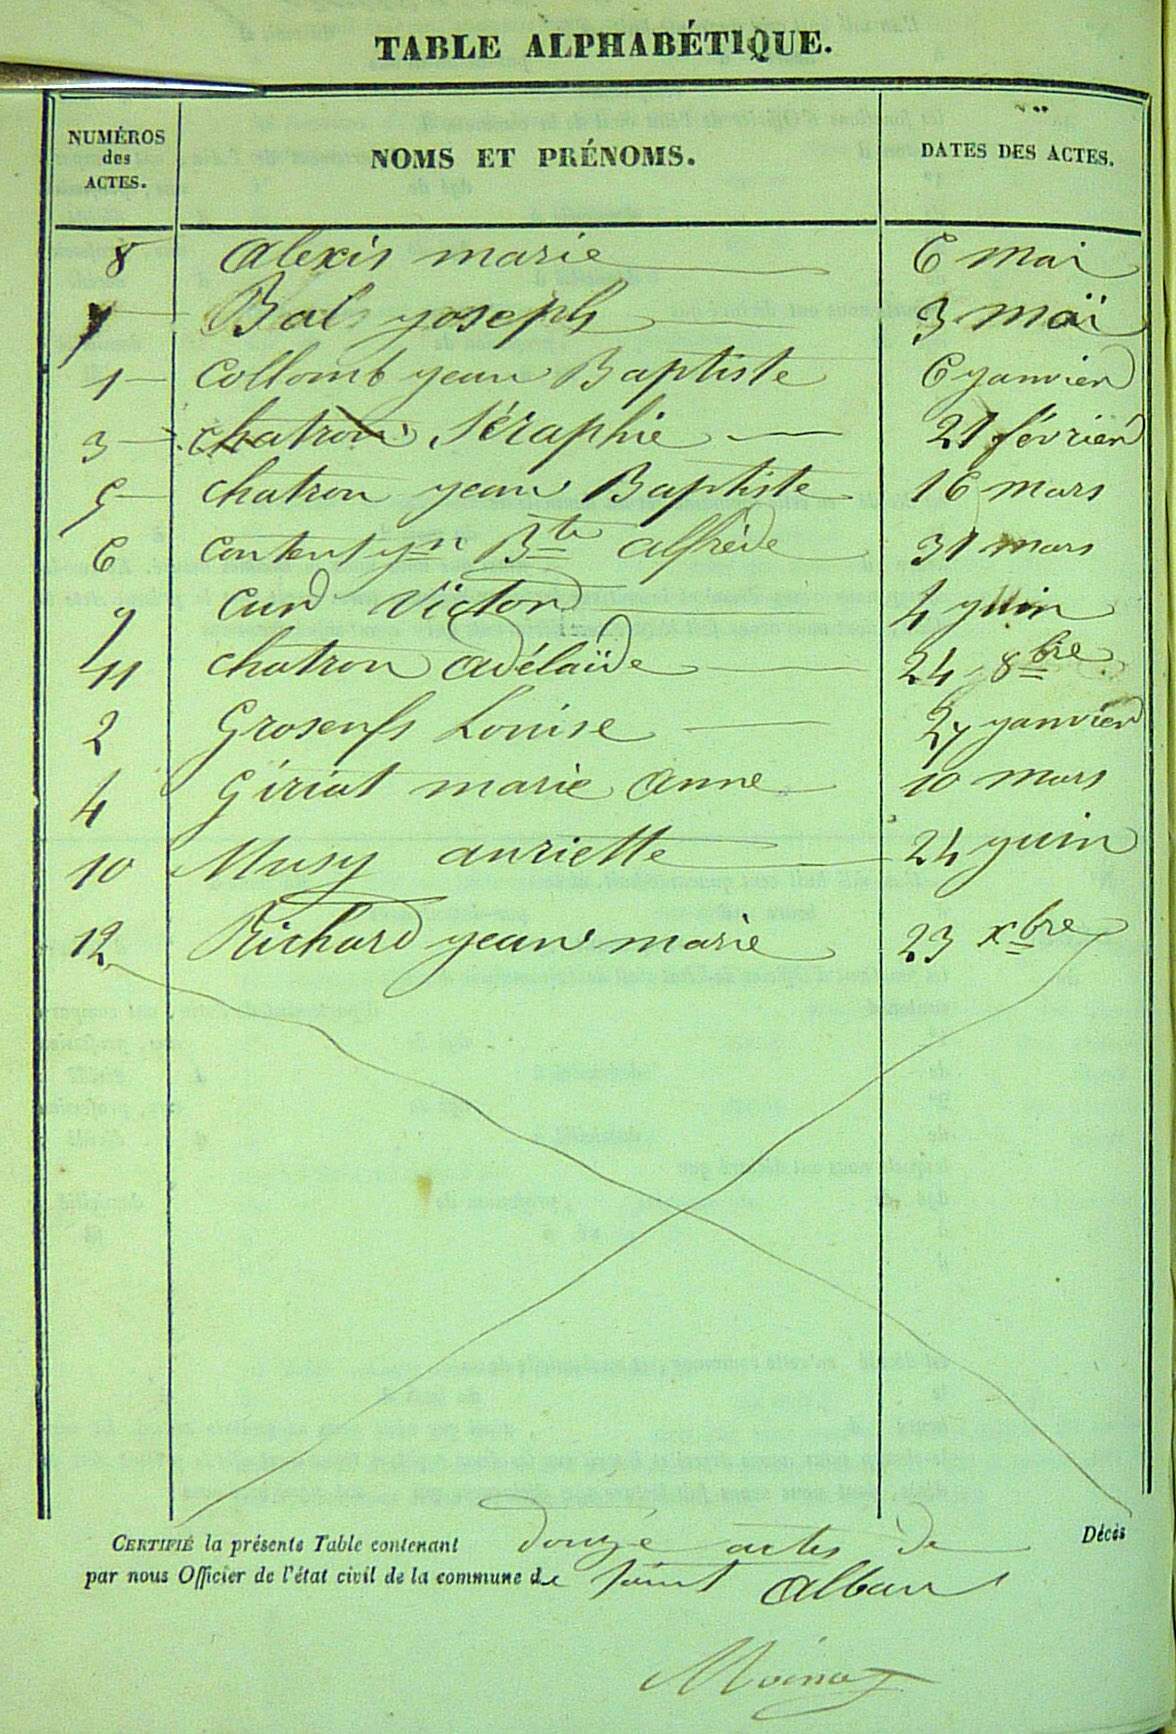 TABLE ALPHABÉTIQUE.
NUMÉROS des ACTES. NOMS ET PRÉNOMS. DATES DES ACTES.
8 Alexis marie 6 mai
7 Bal yoseph 3 maï
1 Collomb yean Baptiste 6 yanvier
3 chatron Séraphie 21 février
5 chatron yean Baptiste 16 mars
6 Content yn Bte alfrède 31 mars
9 Curd Victor 4 yuin
11 chatron adélaïde 24 8bre
2 Grosenfs Louise 27 yanvier
4 Giriat marie anne 10 mars
10 Musy anriette 24 yuin
12 Richard yean marie 23 xbre
CERTIFIÉ la présente Table contenant douze actes de Décès
par nous Officier de l'état civil de la commune de saint Alban